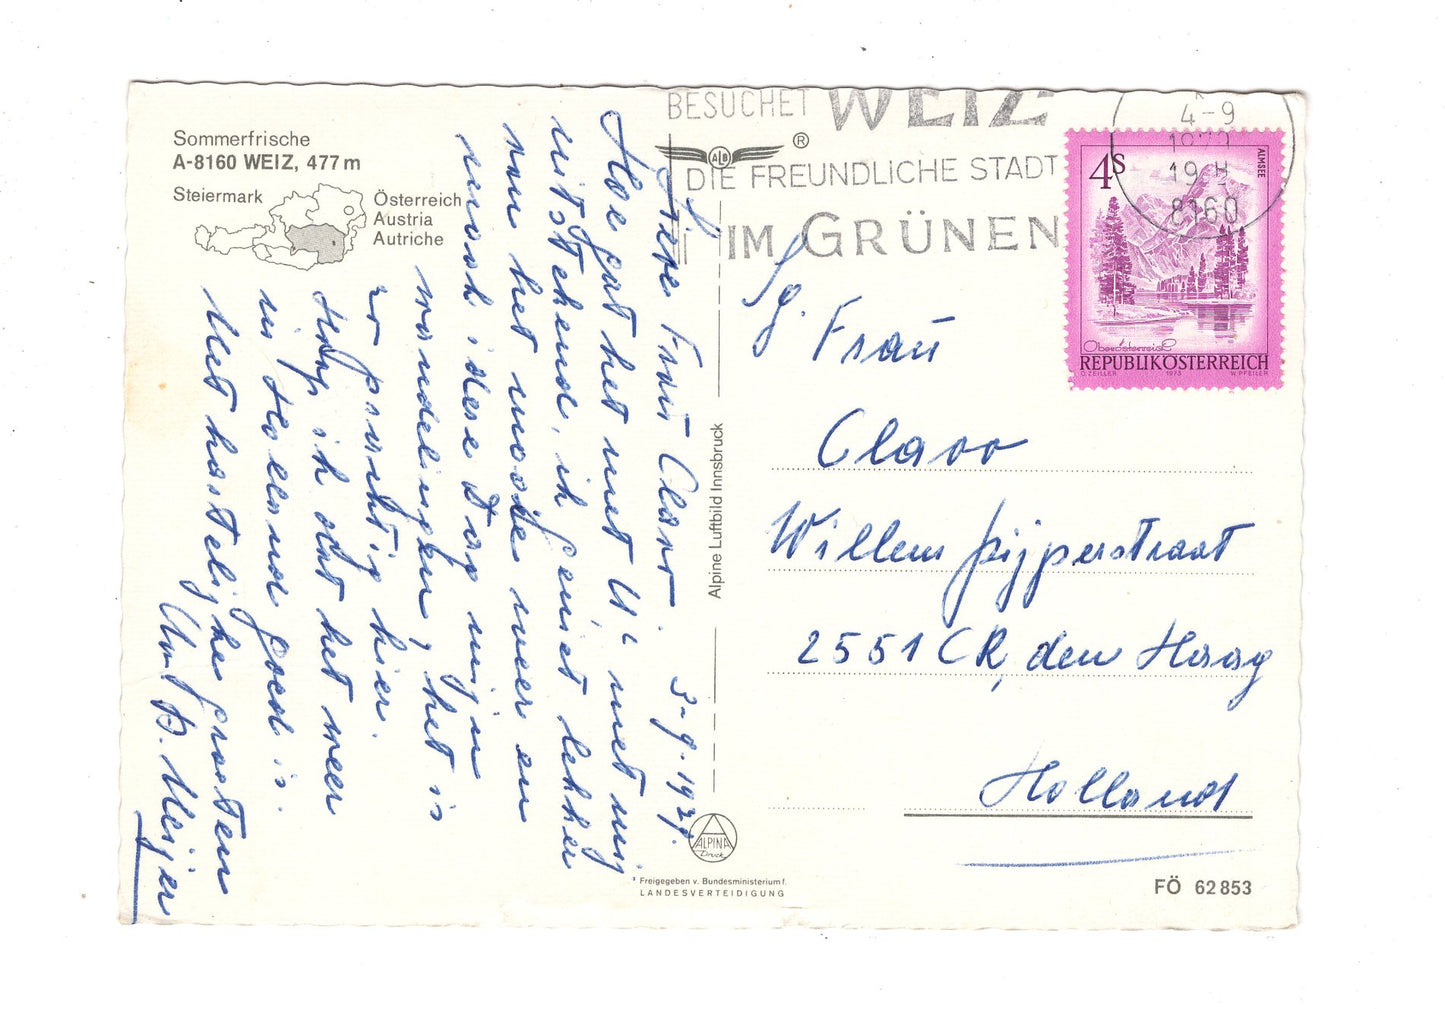 Sommerfrische
A-8160 WEIZ, 477 m
Steiermark
Österreich
Austria
Autriche
BESUCHET WEIZ
DIE FREUNDLICHE STADT
IM GRÜNEN
ALB
®
4-9
1979
19
8160
4S
ALMSEE
Oberösterreich
REPUBLIK ÖSTERREICH
O. ZEILER 1973 W. PFEILER
3-9-1979.
Liebe Frau Claar
Hoe gaat het met U, met mij
uitstekend, ik geniet lekker
van het mooie weer en
maak iedere Dag mijn
wandelingen, het is
zo prachtig hier.
Hoop ik dat het weer
in Holland goed is.
Met hartelijke groeten
B. Meijer
Alpine Luftbild Innsbruck
ALPINA
Druck
Freigegeben v. Bundesministerium f.
LANDESVERTEIDIGUNG
Sg. Frau
Claar
Willem pijperstraat
2551 CR, den Haag
Holland
FÖ 62 853